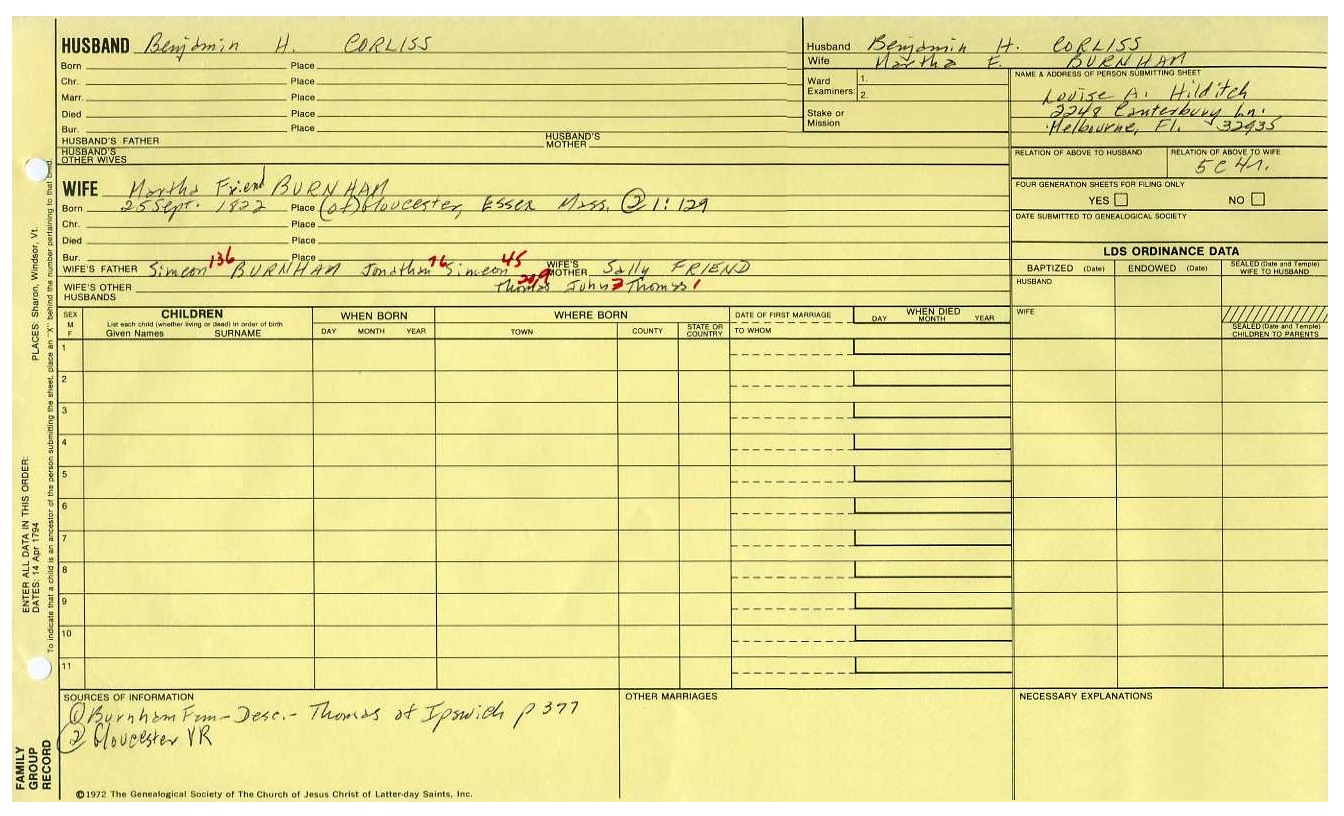 HUSBAND Benjamin H. CORLISS
Born Place
Chr. Place
Marr. Place
Died Place
Bur. Place
HUSBAND'S FATHER HUSBAND'S MOTHER
HUSBAND'S OTHER WIVES
Husband Benjamin H. CORLISS
Wife Martha F. BURNHAM
Ward Examiners: 1.
2.
Stake or Mission
NAME & ADDRESS OF PERSON SUBMITTING SHEET
Louise A. Hilditch
2248 Canterbury Ln.
Melbourne, Fl. 32935
RELATION OF ABOVE TO HUSBAND RELATION OF ABOVE TO WIFE
5C4r.
FOUR GENERATION SHEETS FOR FILING ONLY
YES NO
DATE SUBMITTED TO GENEALOGICAL SOCIETY
WIFE Martha Friend BURNHAM
Born 25 Sept. 1822 Place (of) Gloucester, Essex Mass. ② 1:129
Chr. Place
Died Place
Bur. Place
WIFE'S FATHER Simeon 136 BURNHAM Jonathan 76 Simeon 45 WIFE'S MOTHER Sally FRIEND
Thomas John Thomas 1
WIFE'S OTHER HUSBANDS
LDS ORDINANCE DATA
BAPTIZED (Date) ENDOWED (Date) SEALED (Date and Temple) WIFE TO HUSBAND
HUSBAND
WIFE
SEALED (Date and Temple) CHILDREN TO PARENTS
SEX M F
CHILDREN
List each child (whether living or dead) in order of birth
Given Names SURNAME
WHEN BORN
DAY MONTH YEAR
WHERE BORN
TOWN COUNTY STATE OR COUNTRY
DATE OF FIRST MARRIAGE
TO WHOM
WHEN DIED
DAY MONTH YEAR
1
2
3
4
5
6
7
8
9
10
11
SOURCES OF INFORMATION
① Burnham Fam - Desc. - Thomas of Ipswich p 377
② Gloucester VR
OTHER MARRIAGES
NECESSARY EXPLANATIONS
©1972 The Genealogical Society of The Church of Jesus Christ of Latter-day Saints, Inc.
FAMILY GROUP RECORD
ENTER ALL DATA IN THIS ORDER:
DATES: 14 Apr 1794
PLACES: Sharon, Windsor, Vt.
To indicate that a child is an ancestor of the person submitting the sheet, place an "X" behind the number pertaining to that child.